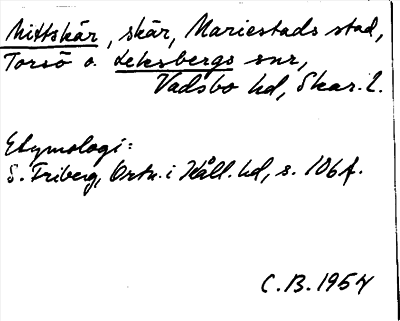 Mittskär, skär, Mariestads stad,
Torsö o. Leksbergs snr,
Vadsbo hd, Skar. l.
Etymologi:
S. Friberg, Ortn. i Kåll. hd, s. 106 f.
C.B. 1954